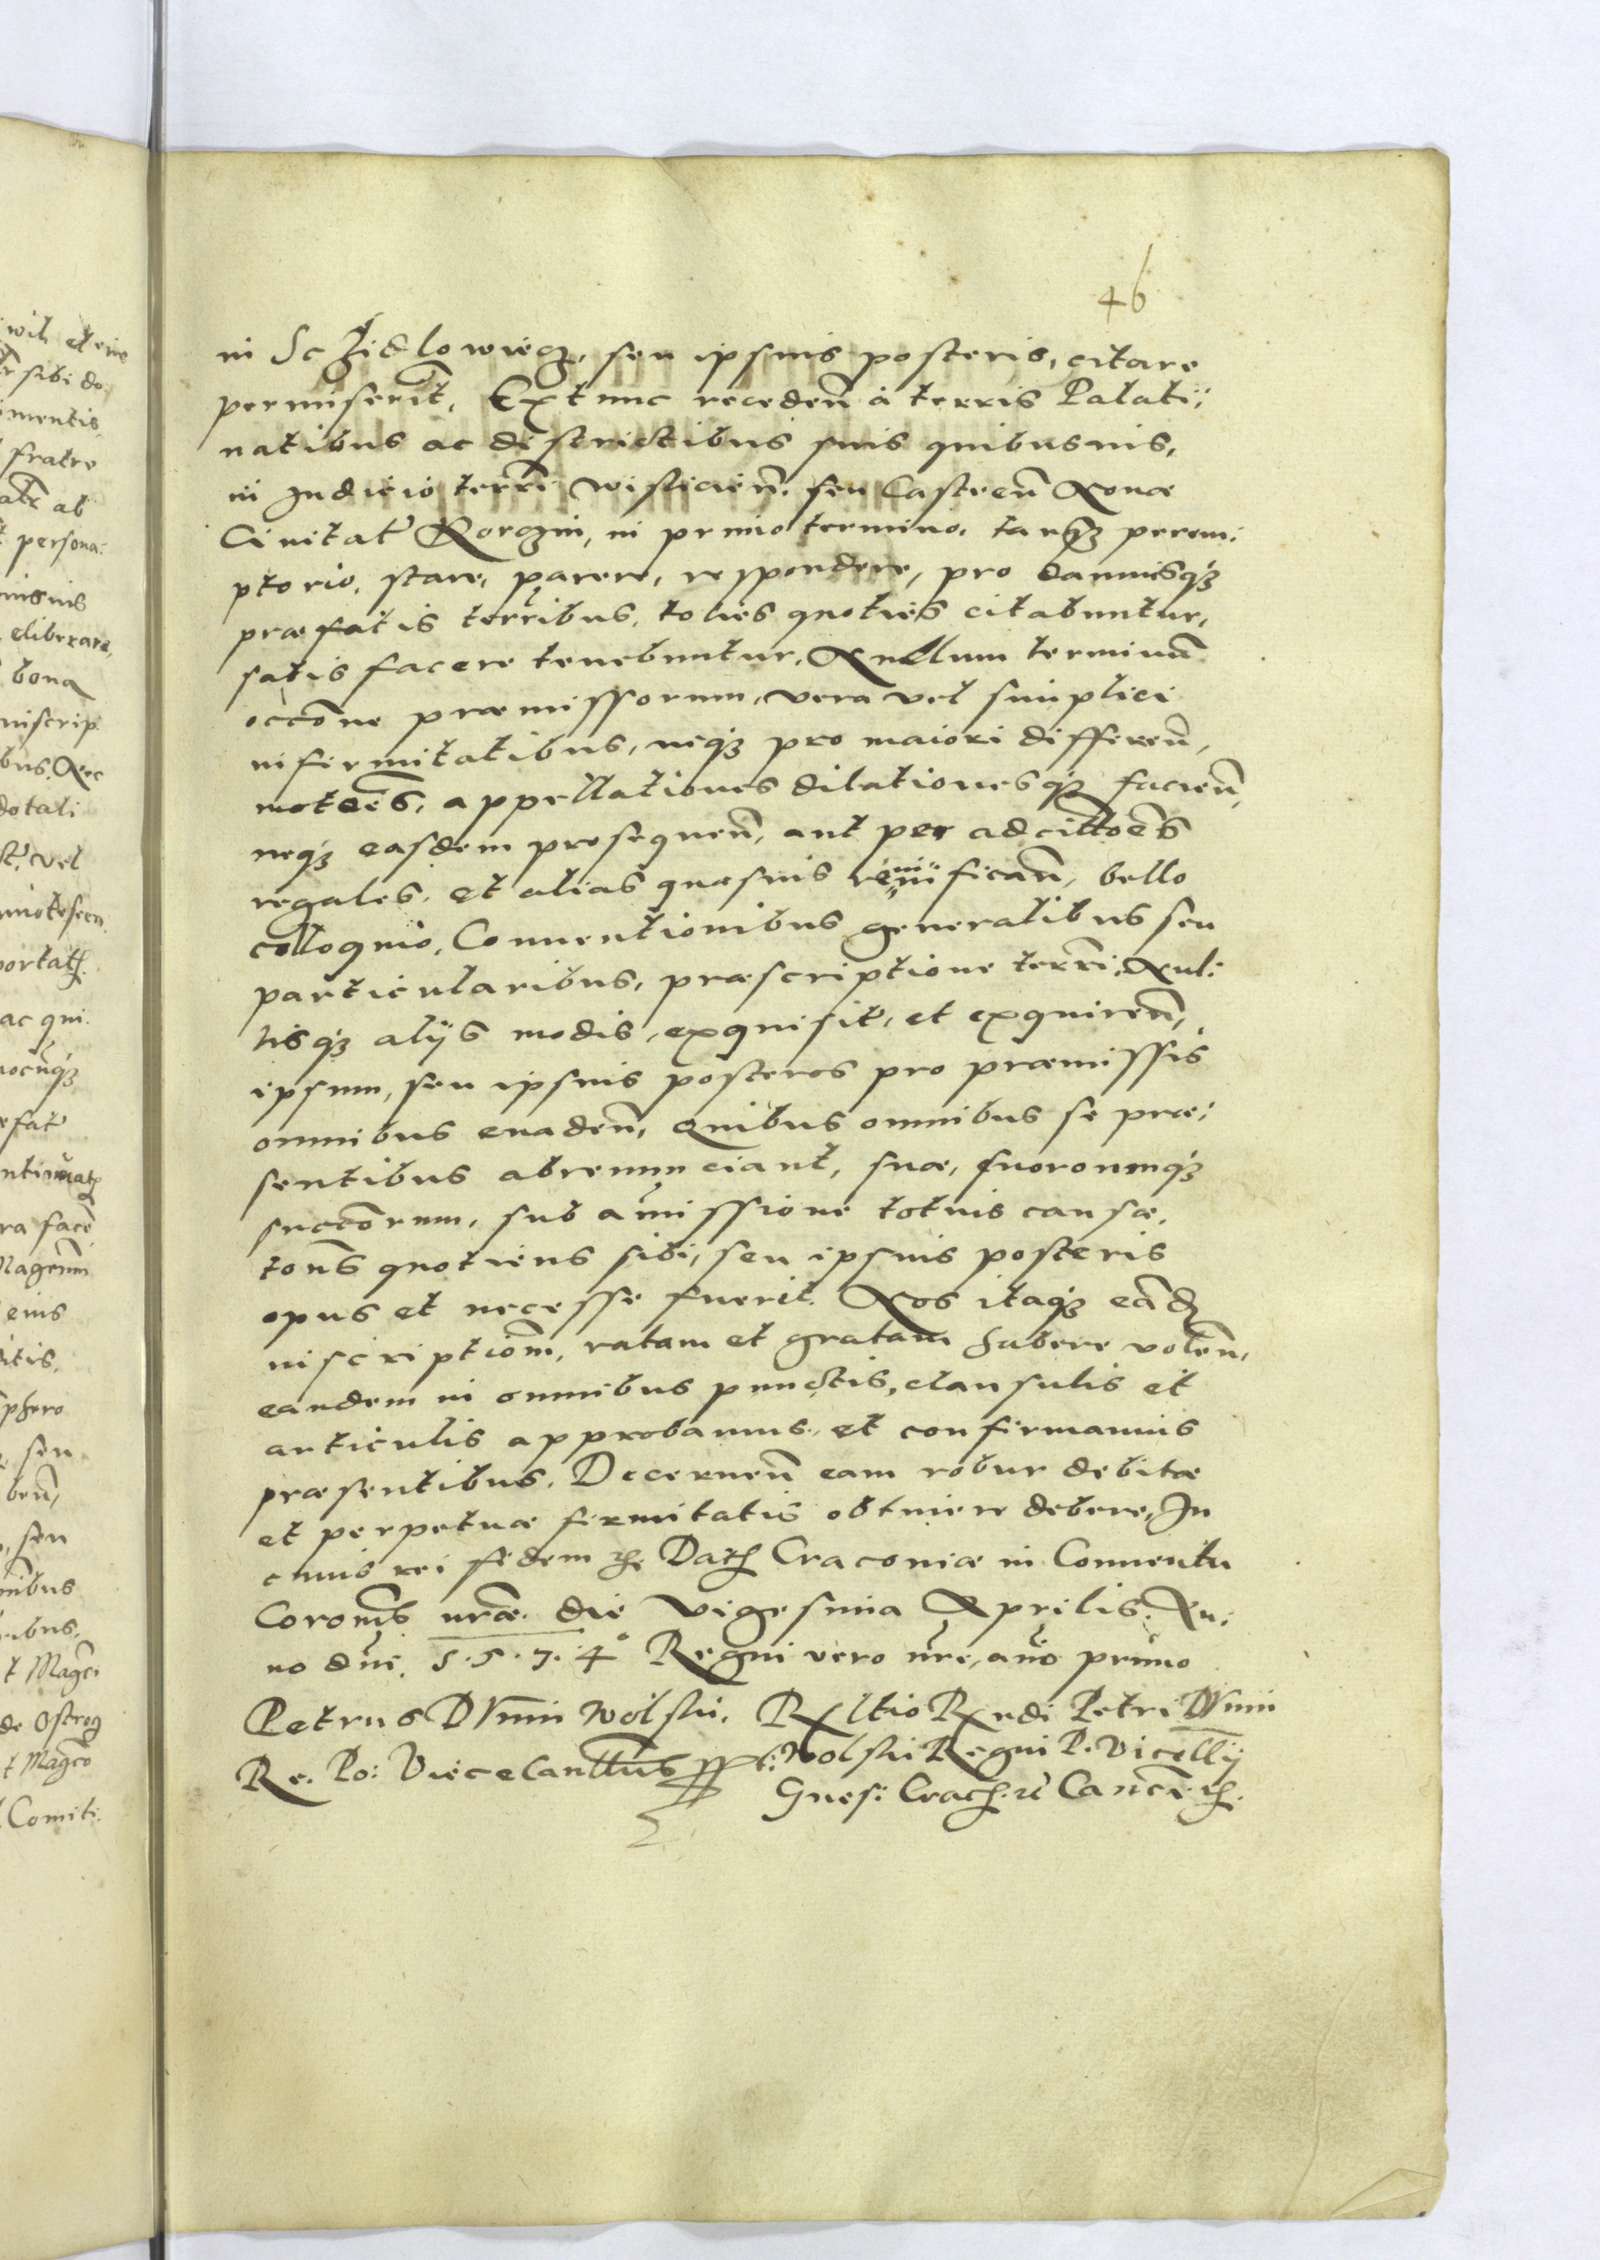 46
in Sczidlowiecz, seu ipsius posteris, citare
permiserit, Extunc recedeñ à terris Palati:
natibus ac districtibus suis quibusvis,
in Judicio terr̃i Wislicieñ. seu Castreñ Novae
Civitat̃ Korczin, in primo termino, tanq̃ perem:
ptorio, stare, parere, respondere, pro damnisq3
praefatis terr̃ibus, toties quoties citabuntur,
satis facere tenebuntur, Nullum terminũ
occõne praemissorum, vera vel simplici
infirmitatibus, neq3 pro maiori differeñ,
motões, appellationes dilationesq3 facieñ,
neq3 easdem prosequeñ, aut per adcittões
regales, et alias quasvis ficañ, bello
colloquio, Conventionibus generalibus seu
particularibus, praescriptione terr̃i, Nul:
lisq3 alijs modis, exquisit̃, et exquireñ,
ipsum, seu ipsius posteros pro praemissis
omnibus evadeñ, Quibus omnibus se prae:
sentibus abrenunciant, suae, suorumq3
succõrum, sub amissione totius causae,
toñs quotiens sibi, seu ipsius posteris
opus et necesse fuerit. Nos itaq3 eãd
inscriptioñm, ratam et gratam habere voleñ,
eandem in omnibus punctis, clausulis et
articulis approbamus, et confirmamus
praesentibus, Decerneñ eam robur debitae
et perpetuae firmitatis obtinere debere, In
cuius rei fidem Dat̃ Cracoviae in Conventu
Coroñis nr̃ae die Vigesima Aprilis. An:
no dñi. 1.5.7.4° Regni vero nr̃i, año primo
Petrus Dunin Wolski. Rltio Rndi Petri Dunin
Re. Po: Vicecanllrius sst: Wolski Regni P. Vicellij
Gnes: Crac: Canci